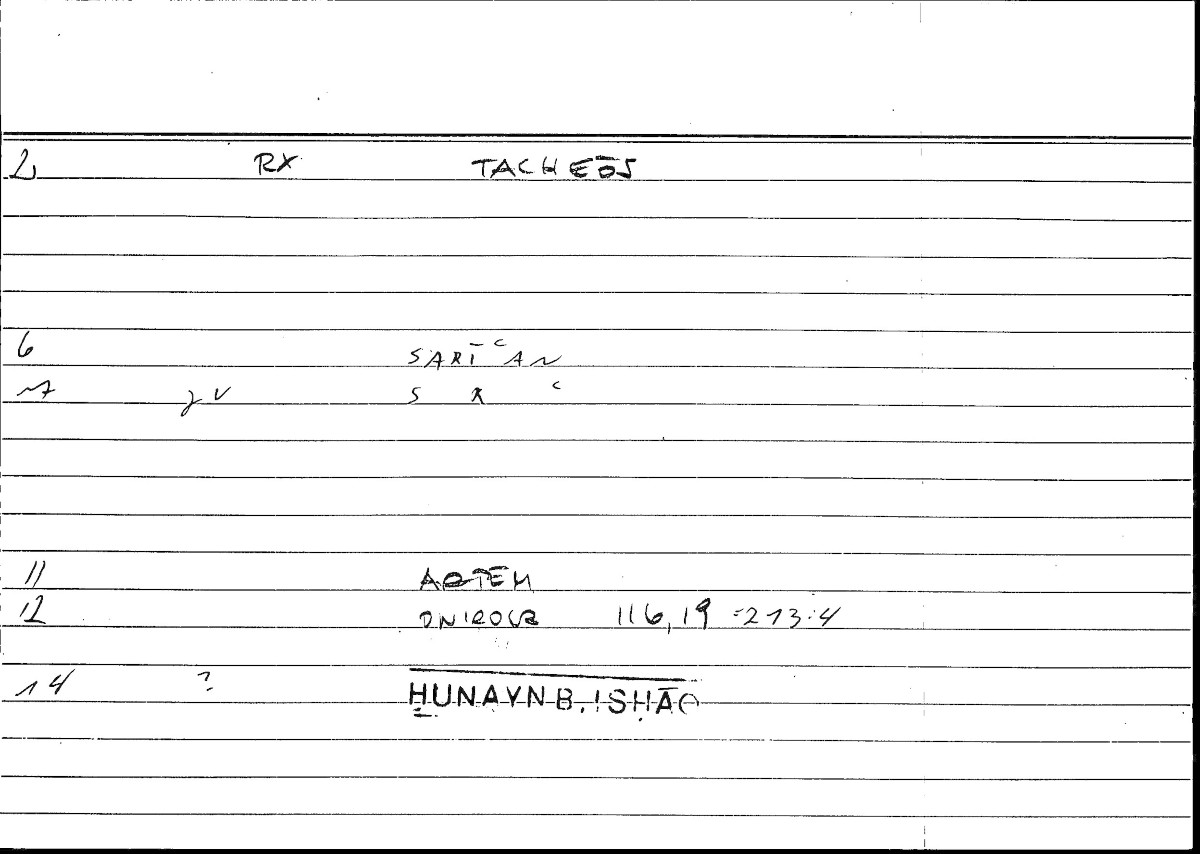 2 RX TACHEŌS
6 SARĪʿAN
7 γV S R ʿ
11 ARTEM
12 ONIROCR 116,19 = 213:4
14 ? ḤUNAYN B. ISḤĀQ